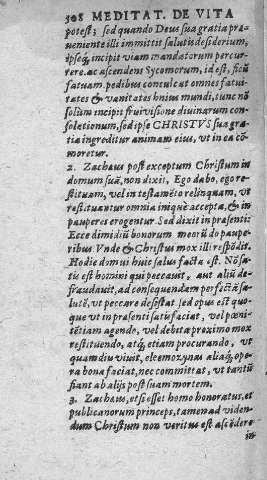 308 MEDITAT. DE VITA
potest; sed quando Deus sua gratia præ-
ueniente illi immittit salutis desiderium,
ipseq́; incipit viam mandatorum percur-
rere, ac ascendens Sycomorum, id est, ficũ
fatuam, pedibus conculcat omnes fatui-
tates & vanitates huius mundi, tunc nõ
solùm incipit frui visione diuinarum con-
solationum, sed ipse CHRISTVS sua gra-
tia ingreditur animam eius, vt in ea cõ-
moretur.
2. Zachæus post exceptum Christum in
domum suã, non dixit, Ego dabo, ego re-
stituam, vel in testamẽto relinquam, vt
restituantur omnia iniquè accepta, & in
pauperes erogentur. Sed dixit in præsenti:
Ecce dimidiũ bonorum meorũ do paupe-
ribus. Vnde & Christus mox illi respõdit.
Hodie domui huic salus facta est. Nõ sa-
tis est homini qui peccauit, aut aliũ de-
fraudauit, ad consequendam perfectã sa-
lutẽ, vt peccare desistat, sed opus est quo-
que vt in præsenti satisfaciat, vel pœni-
tẽtiam agendo, vel debita proximo mox
restituendo, atq́; etiam procurando, vt
quamdiu viuit, eleemozynas aliaq́; ope-
ra bona faciat, nec committat, vt tantũ
fiant ab alijs post suam mortem.
3. Zachæus, etsi esset homo honoratus, et
publicanorum princeps, tamen ad viden-
dum Christum non veritus est ascẽdere
in